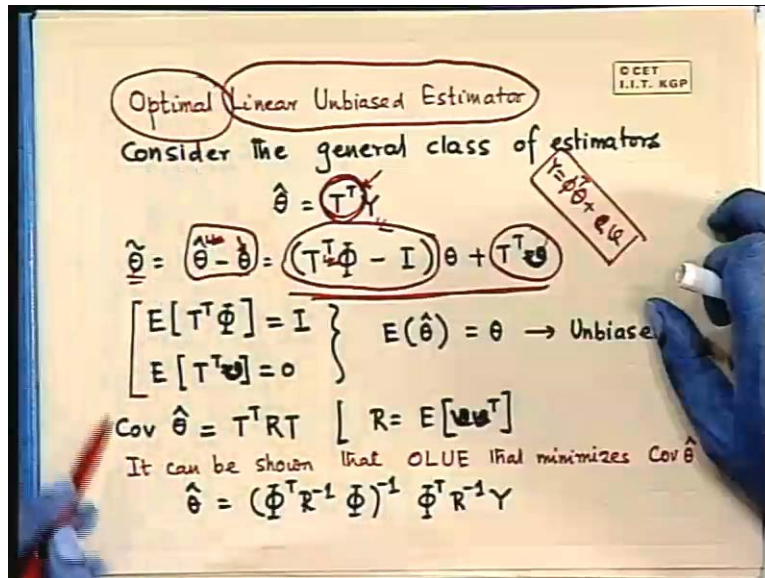 © CET
I.I.T. KGP
Optimal Linear Unbiased Estimator
Consider the general class of estimators
θ̂ = Tᵀ Y
Y = φᵀθ + 
θ̃ = θ̂ - θ = (TᵀΦ - I) θ + Tᵀυ
E[TᵀΦ] = I
E[Tᵀυ] = 0
E(θ̂) = θ → Unbiase
Cov θ̂ = TᵀRT [ R = E[υυᵀ]
It can be shown that OLUE that minimizes Cov θ̂
θ̂ = (Φᵀ R⁻¹ Φ)⁻¹ Φᵀ R⁻¹ Y